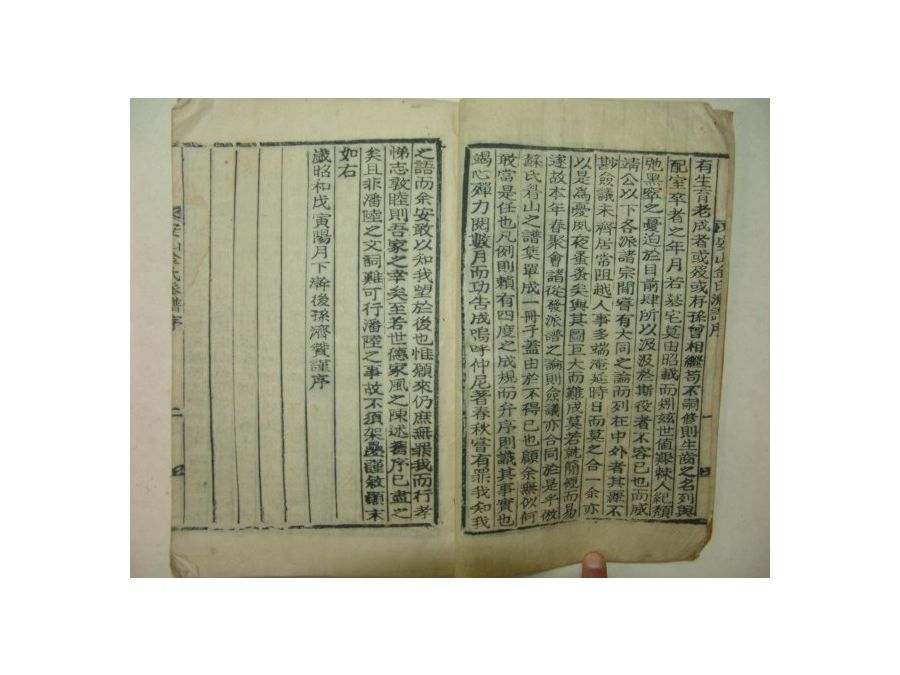 有生育老成者或歿或存孫曾相繼苟不嗣修則生齒之名列與
配室卒者之年月若墓宅莫由昭載而矧玆世値艱棘人紀頹
弛黑窣之憂迫於目前肆所以汲汲於斯役者不容已也而威
靖公以下各派諸宗間嘗有大同之論而列在中外者其源不
尠僉議未齊居常阻越人事多端淹延時日而莫之合一余亦
以是為憂夙夜蚤蚤矣與其圖巨大而難成莫若就簡便而易
遂故本年春聚會諸從發派譜之論則僉議亦合同於是乎倣
蘇氏眉山之譜集單成一冊子蓋由於不得已也顧余無似何
敢當是任也凡例則賴有四度之成規而弁序則識其事實也
竭心殫力閱數月而功告成嗚呼仲尼著春秋嘗有罪我知我
之語而余安敢以知我望於後也惟願來仍庶無罪我而行孝
悌志敦睦則吾家之幸矣至若世德家風之陳述舊序已盡之
矣且非潘陸之文詞難可行潘陸之事故不須架疊謹敘顚末
如右
歲昭和戊寅陽月下澣後孫濟贊謹序
安山金氏派譜序
一
安山金氏派譜序
二